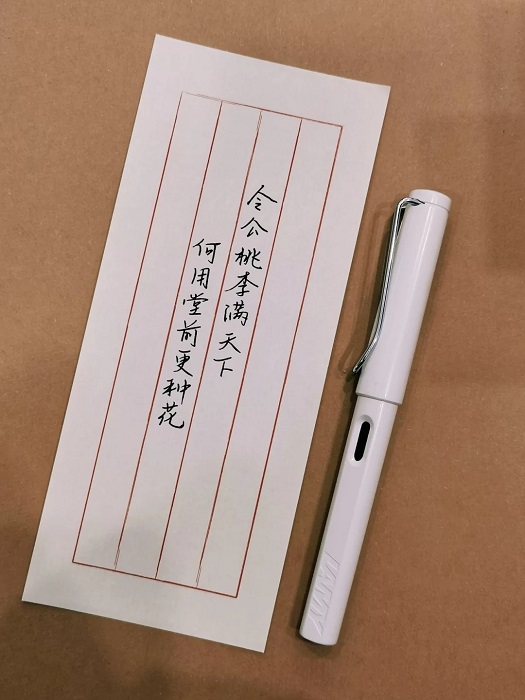 令公桃李满天下
何用堂前更种花
LAMY